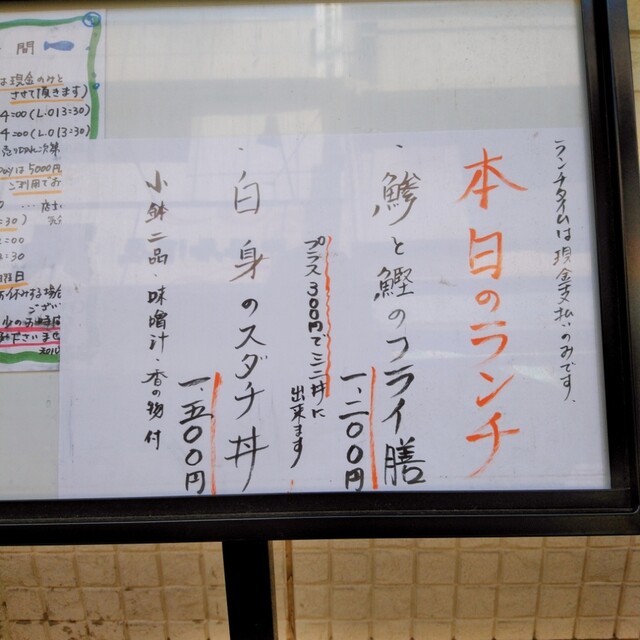 ランチタイムは現金支払いのみです。
本日のランチ
・鯵と鰹のフライ膳
一、二〇〇円
プラス300円でミニ丼に
出来ます
・白身のスダチ丼
一、五〇〇円
小鉢二品・味噌汁・香の物付
間
は現金のみと
させて頂きます)
4:00(L.O13:30)
4:00(L.O13:30)
5000円
ご利用
:30)
:00
:30
曜日
お休みする場合